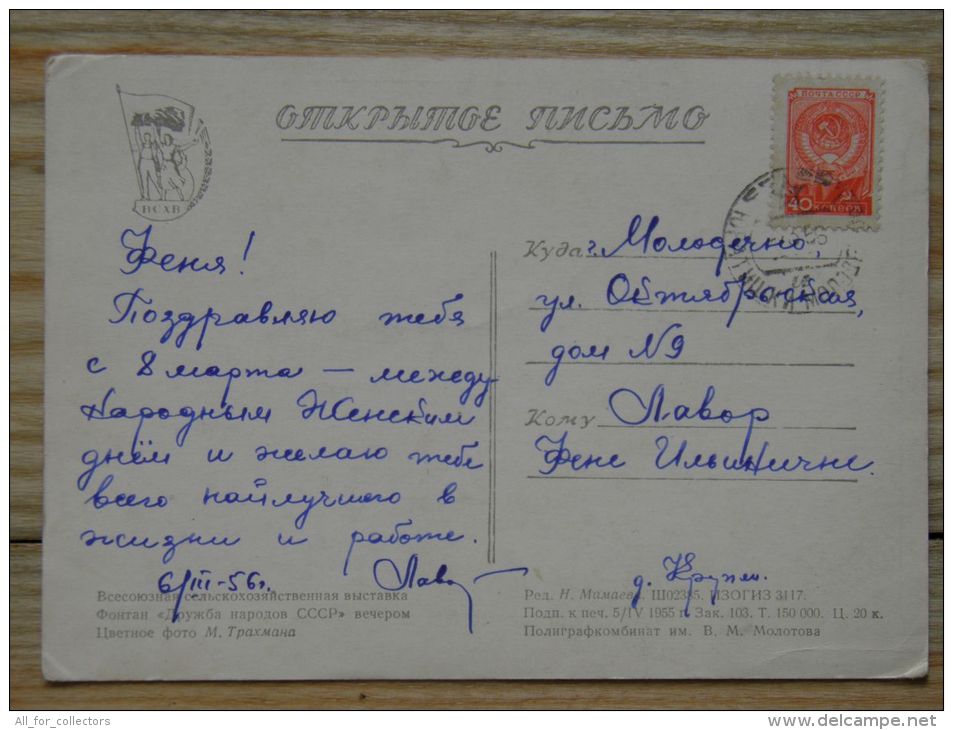 ОТКРЫТОЕ ПИСЬМО
ПОЧТА СССР
40
ВСХВ
Феня!
Поздравляю тебя
с 8 марта — между-
народным Женским
днём и желаю тебе
всего найлучшого в
жизни и работе.
6/III-56г.
Куда г. Молодечно,
ул. Октябрьская,
дом №9
Кому Лавор
Фене Ильиничне.
Всесоюзная сельскохозяйственная выставка
Фонтан «Дружба народов СССР» вечером
Цветное фото М. Трахмана
Ред. Н. Мамаева. Ш02385. ИЗОГИЗ 3117.
Подп. к печ. 5/IV 1955 г. Зак. 103. Т. 150 000. Ц. 20 к.
Полиграфкомбинат им. В. М. Молотова
All_for_collectors
http://www.delcampe.net